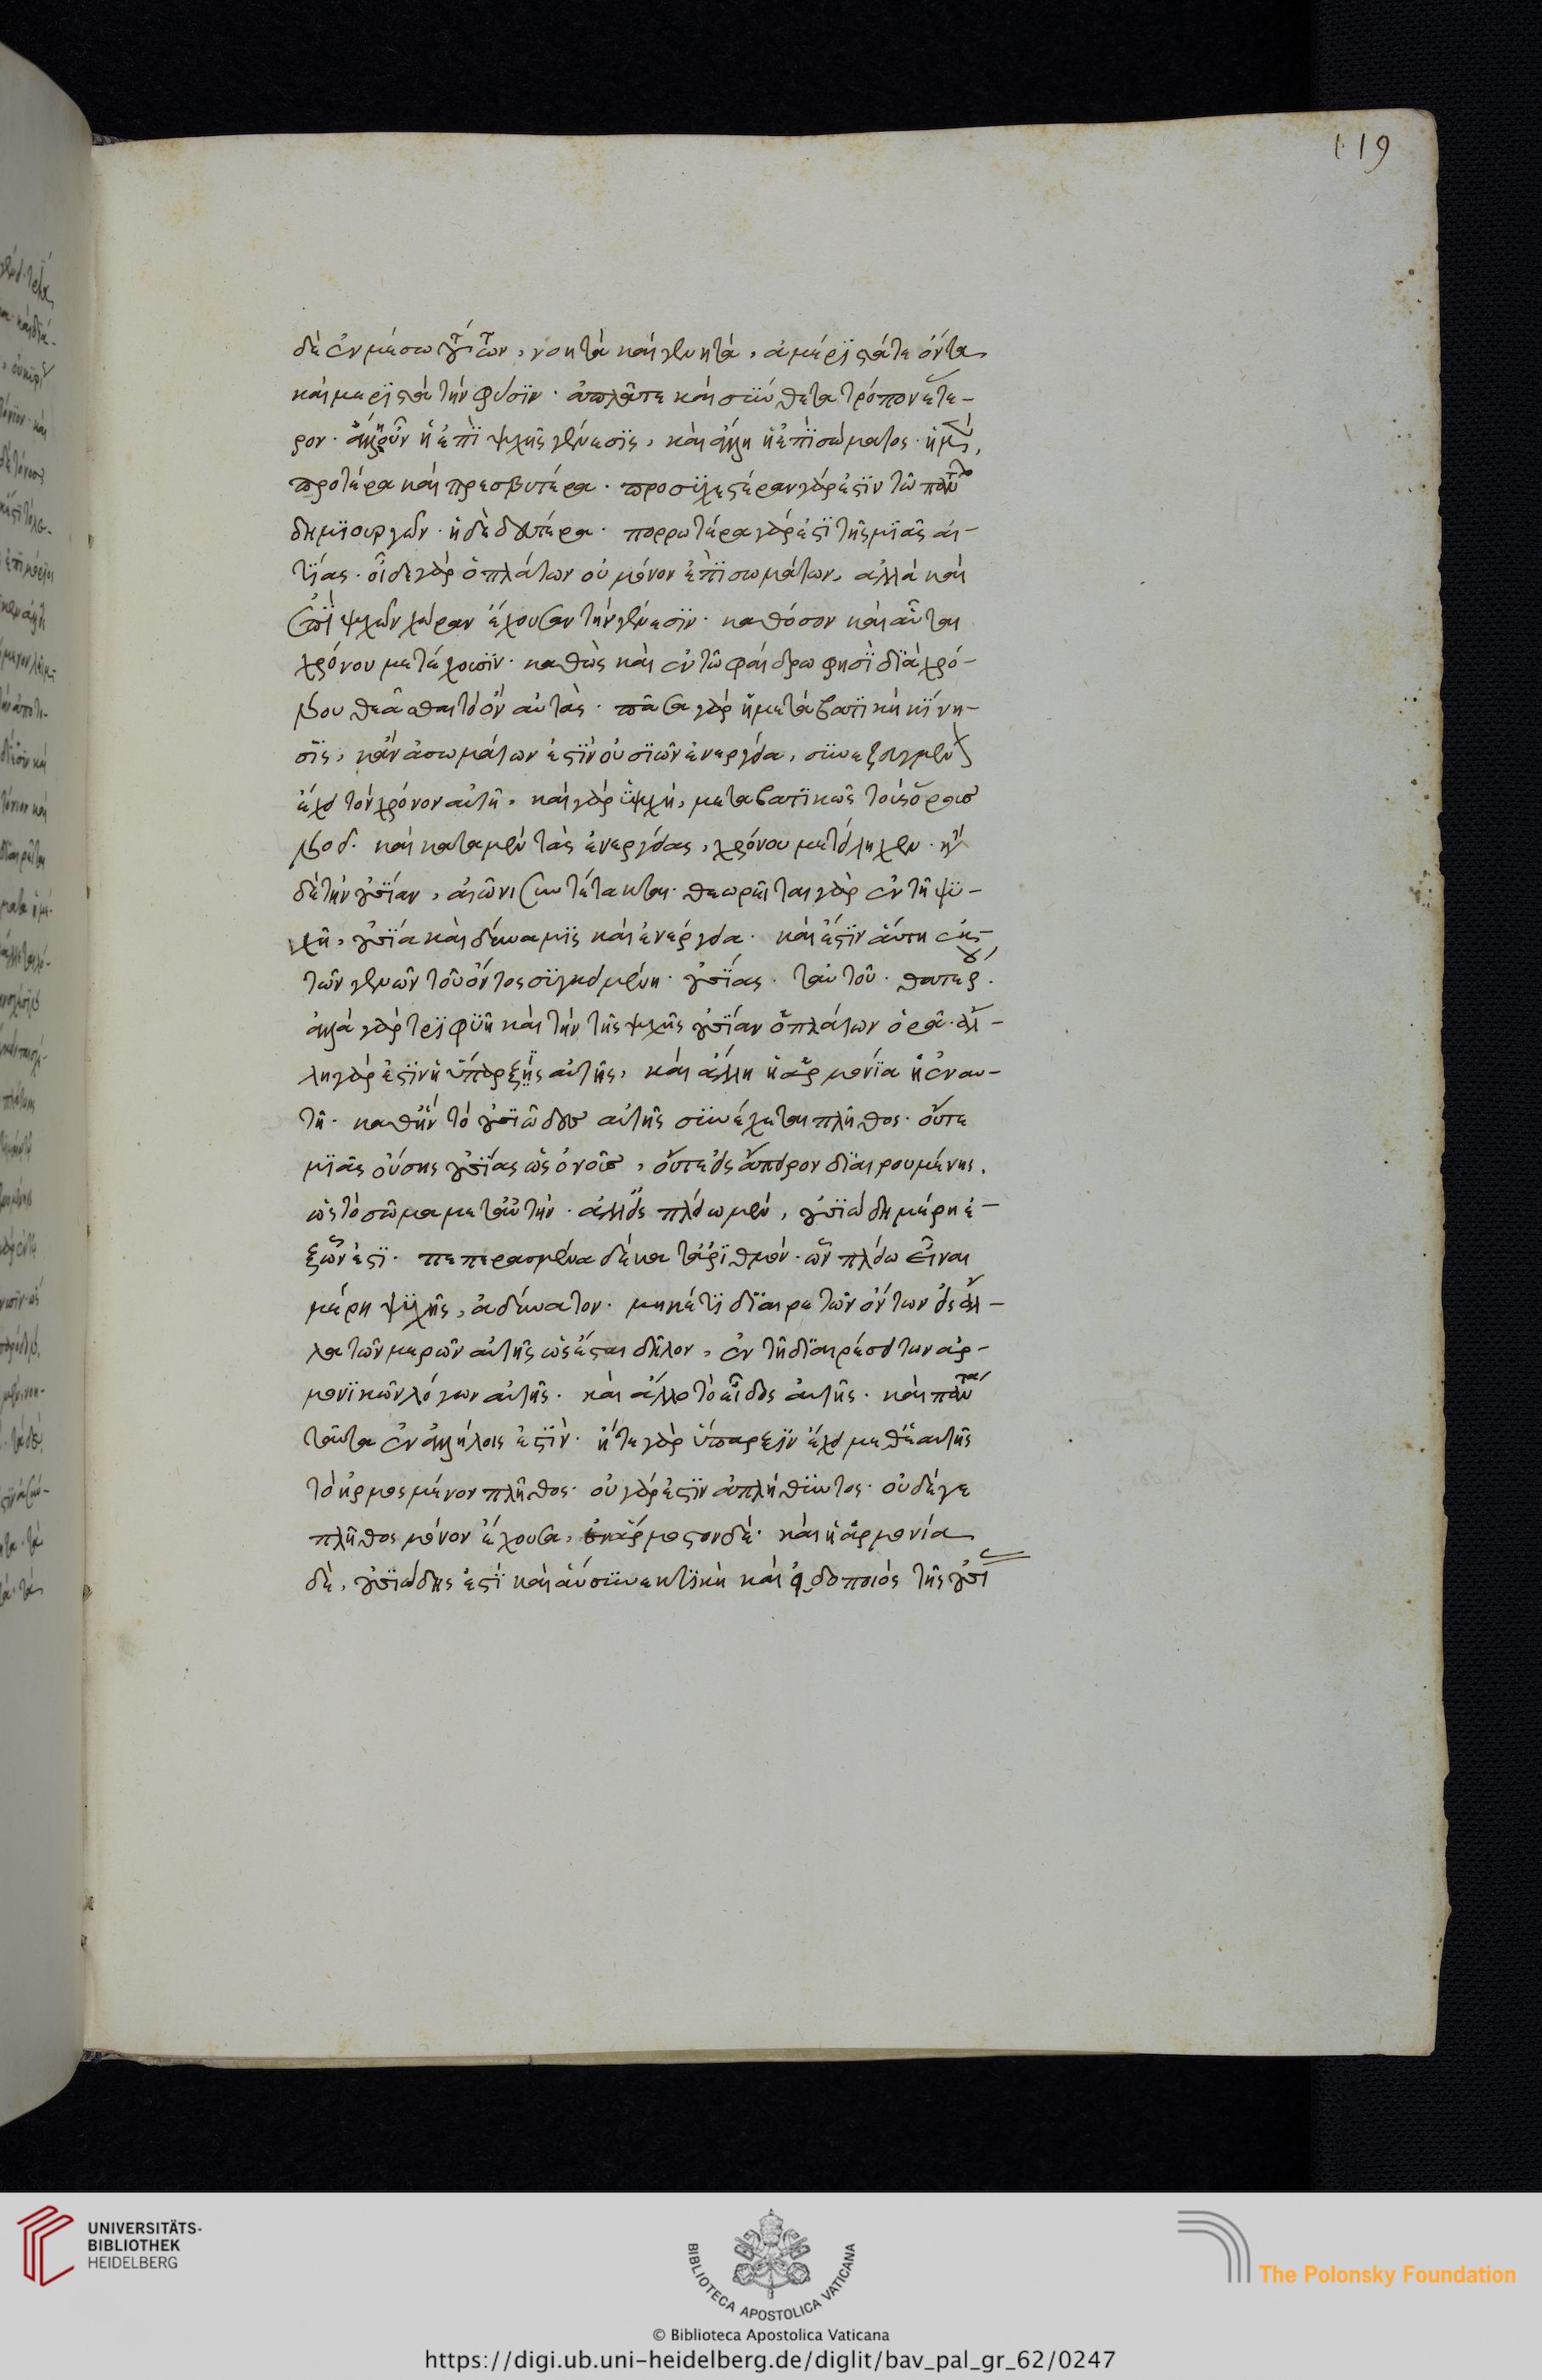 119
δὲ ἐν μέσω τούτων, νοητὰ καὶ γενητὰ, ἀμέριστά τε ὄντα
καὶ μεριστὰ τὴν φύσιν· ἁπλᾶ τε καὶ σύνθετα τρόπον ἕτε-
ρον· ἄλλη οὖν ἡ ἐπὶ ψυχῆς γένεσις, καὶ ἄλλη ἡ ἐπὶ σώματος· ἡ μὲν,
προτέρα καὶ πρεσβυτέρα· προσεχεστέραν γάρ ἐστιν τῶ παντὸς
δημιουργῶν· ἡ δὲ δευτέρα· πορρωτέρα γάρ ἐστι τῆς μιᾶς αἰ-
τίας· οἶδε γὰρ ὁ πλάτων οὐ μόνον ἐπὶ σωμάτων, ἀλλὰ καὶ
ἐπὶ ψυχῶν χώραν ἔχουσαν τὴν γένεσιν· καθόσον καὶ αὗται
χρόνου μετέχουσιν· καθὼς καὶ ἐν τῶ φαίδρω φησὶ διὰ χρό-
νου θεᾶσθαι τὸ ὂν αὐτάς· πᾶσα γὰρ ἡ μεταβατικὴ κίνη-
σις, κἂν ἀσωμάτων ἐστὶν οὐσιῶν ἐνέργεια, συνεζευγμένον
ἔχει τὸν χρόνον αὐτῆ, καὶ γὰρ ἡ ψυχὴ, μεταβατικῶς τοῖς ὁρατοῖς
νοεῖ· καὶ κατὰ μὲν τὰς ἐνεργείας, χρόνου μετείληχεν· κατὰ
δὲ τὴν οὐσίαν, αἰῶνι συντέτακται· θεωρεῖται γὰρ ἐν τῆ ψυ-
χῆ, οὐσία καὶ δύναμις καὶ ἐνέργεια· καὶ ἔστιν αὕτη ἐκ
τῶν γενῶν τοῦ ὄντος συγκειμένη· οὐσίας· ταὐτοῦ· θατέρου·
ἀλλὰ γὰρ τριφυῆ καὶ τὴν τῆς ψυχῆς οὐσίαν ὁ πλάτων ὁρᾶ· ἄλ-
λη γάρ ἐστιν ἡ ὕπαρξις αὐτῆς, καὶ ἄλλη ἡ ἁρμονία ἡ ἐν αυ-
τῆ· καθ' ἣν τὸ οὐσιῶδες αὐτῆς συνέχεται πλῆθος· οὔτε
μιᾶς οὔσης οὐσίας ὡς ὁ νοῦς, οὔτε εἰς ἄπειρον διαιρουμένης,
ὡς τὸ σῶμα μετ' αὐτὴν· ἀλλ' εἰς πλείω μὲν, οὐσιώδη μέρη ἐ-
ξ ὧν ἐστι· πεπερασμένα δὲ κατ' ἀριθμόν· ὧν πλείω εἶναι
μέρη ψυχῆς, ἀδύνατον· μηκέτι διαιρετῶν ὄντων εἰς ἄλ-
λα τῶν μερῶν αὐτῆς ὡς ἔσται δῆλον, ἐν τῆ διαιρέσει των ἁρ-
μονικῶν λόγων αὐτῆς· καὶ ἄλλο τὸ εἶδος αὐτῆς· καὶ πάντα
ταῦτα ἐν ἀλλήλοις ἐστὶν· ἥτε γὰρ ὕπαρξιν ἔχει μεθ' ἑαυτῆς
τὸ ἡρμοσμένον πλῆθος· οὐ γάρ ἐστιν ἀπλήθυντος· οὐδέ γε
πλῆθος μόνον ἔχουσα, ἀνάρμοστον δέ· καὶ ἡ ἁρμονία
δὲ, οὐσιώδης ἐστὶ καὶ ἀυσυνεκτικὴ καὶ εἰδοποιός τῆς οὐσι
UNIVERSITÄTS-
BIBLIOTHEK
HEIDELBERG
BIBLIOTECA APOSTOLICA VATICANA
The Polonsky Foundation
© Biblioteca Apostolica Vaticana
https://digi.ub.uni-heidelberg.de/diglit/bav_pal_gr_62/0247